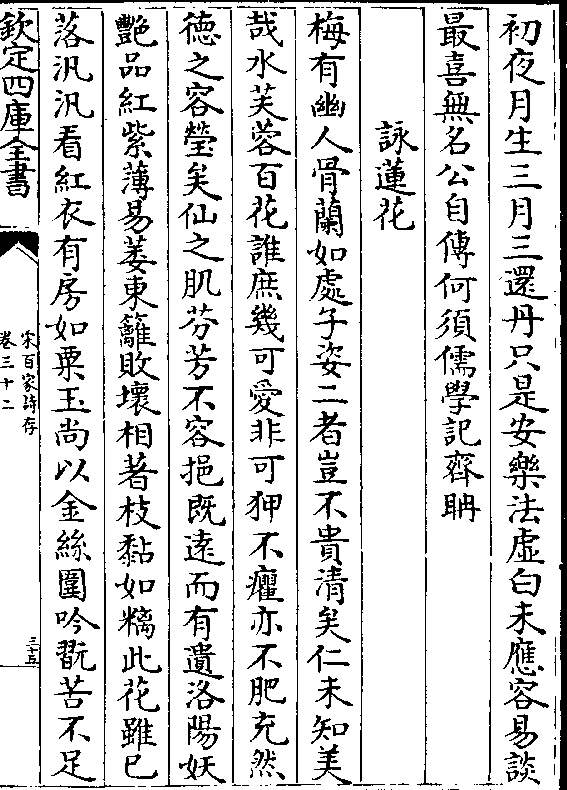 初夜月生三月三還丹只是安樂法虛白未應容易談
最喜無名公自傳何須儒學記齊聃
詠蓮花
梅有幽人骨蘭如處子姿二者豈不貴清矣仁未知美
哉水芙蓉百花誰庶幾可愛非可狎不癯亦不肥充然
德之容瑩矣仙之肌芬芳不容挹既遠而有遺洛陽妖
艷品紅紫薄易萎東籬敗壞相著枝黏如糯此花雖已
落汎汎看紅衣有房如粟玉尚以金絲圍吟翫苦不足
欽定四庫全書
宋百家詩存
卷三十二
三十五